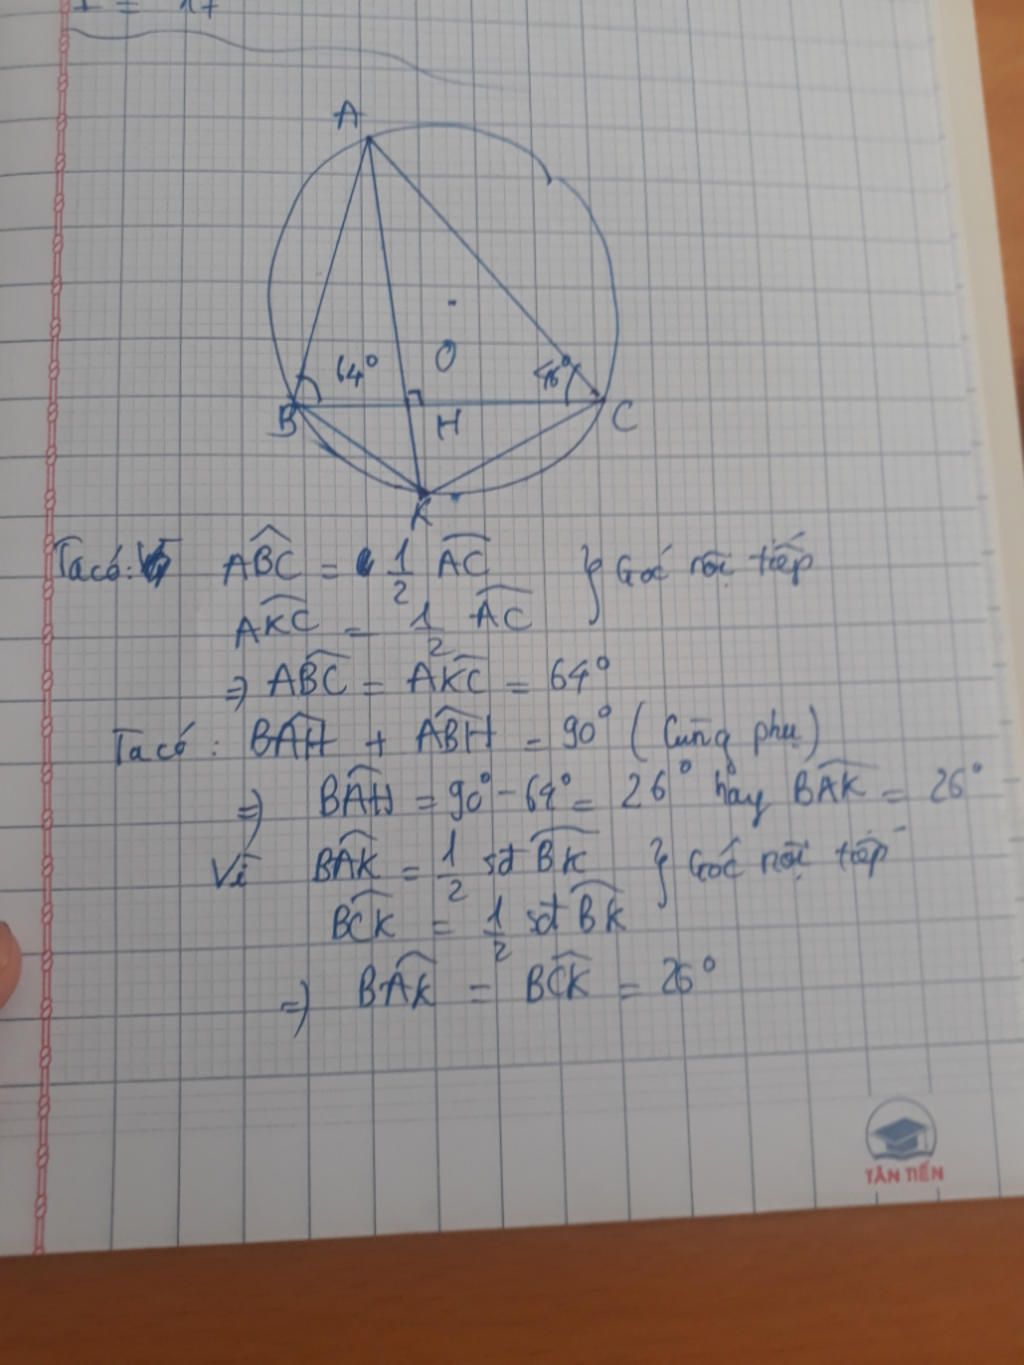 A
64°
O
46°
B
H
C
K
Ta có: ABC = 1/2 AC } Góc nội tiếp
AKC = 1/2 AC
=> ABC = AKC = 64°
Ta có : BAH + ABH = 90° (Cùng phụ)
=> BAH = 90° - 64° = 26° hay BAK = 26°
Vì BAK = 1/2 sđ BK } Góc nội tiếp
BCK = 1/2 sđ BK
=> BAK = BCK = 26°
TÂN TIẾN